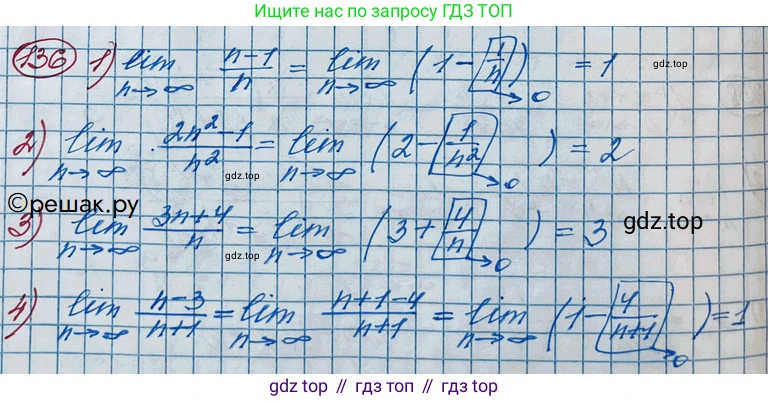 Ищите нас по запросу ГДЗ ТОП
136 1) lim n→∞ (n-1)/n = lim n→∞ (1 - [1/n]→0) = 1 gdz.top
2) lim n→∞ (2n²-1)/n² = lim n→∞ (2 - [1/n²]→0) = 2
gdz.top gdz.top
©решак.ру
3) lim n→∞ (3n+4)/n = lim n→∞ (3 + [4/n]→0) = 3 gdz.top
gdz.top
4) lim n→∞ (n-3)/(n+1) = lim n→∞ (n+1-4)/(n+1) = lim n→∞ (1 - [4/(n+1)]→0) = 1
gdz.top // гдз топ // gdz top